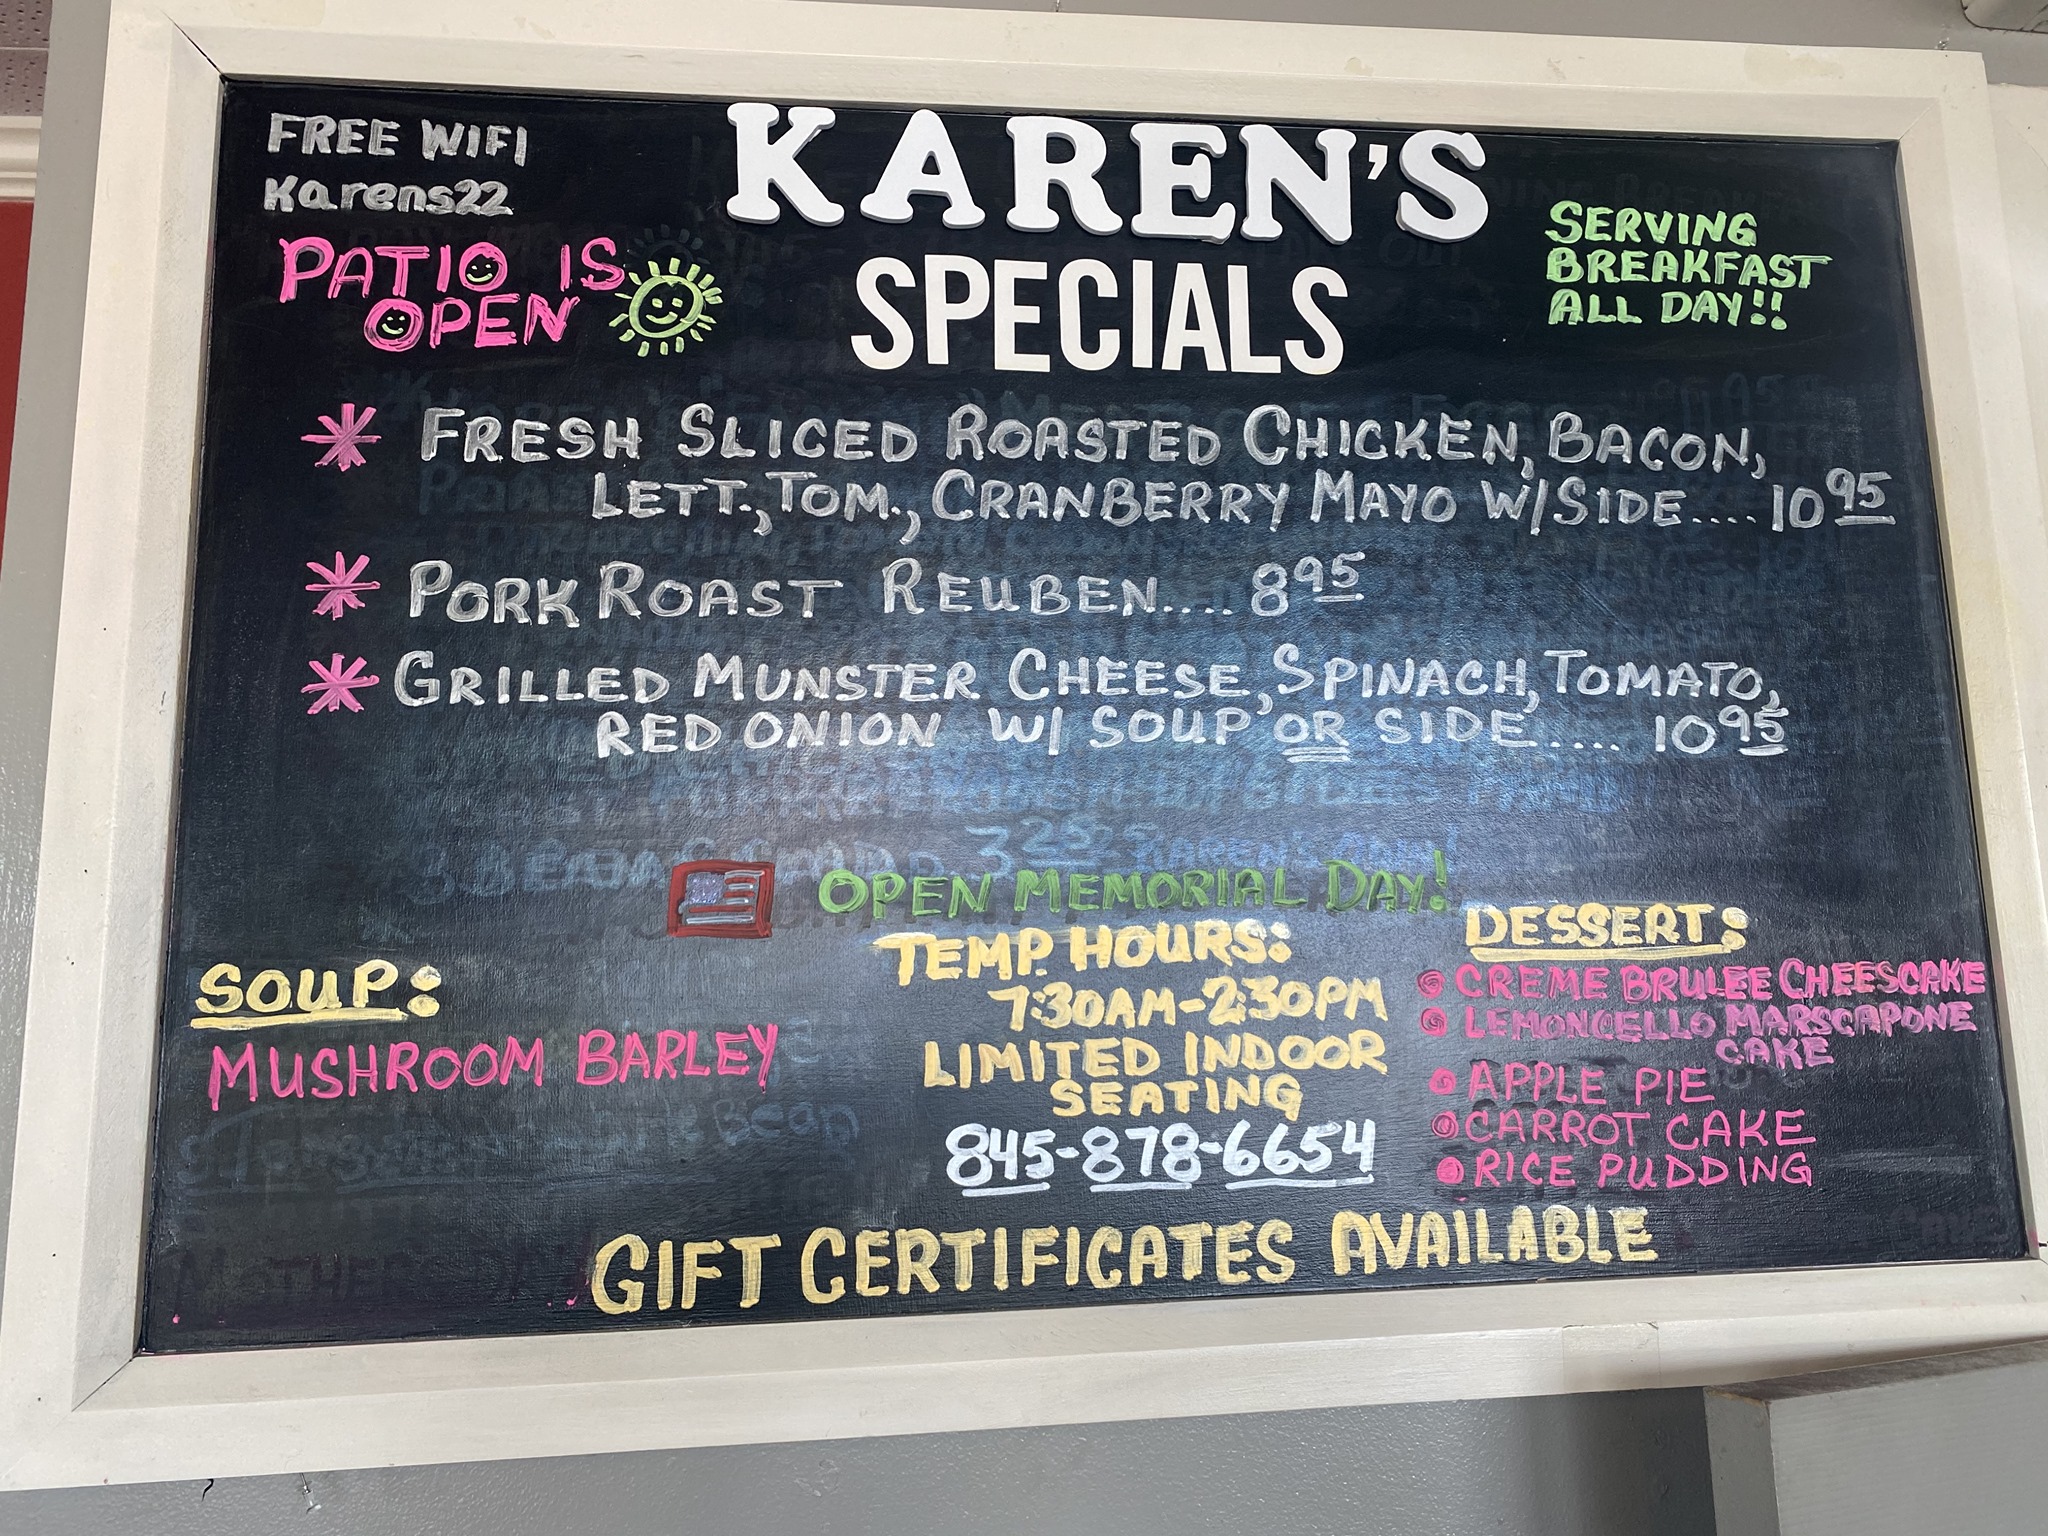 FREE WIFI
Karens22
PATIO IS
OPEN
KAREN'S
SPECIALS
SERVING
BREAKFAST
ALL DAY!!
* FRESH SLICED ROASTED CHICKEN, BACON,
LETT., TOM., CRANBERRY MAYO W/SIDE.... 10 95
* PORK ROAST REUBEN.... 8 95
* GRILLED MUNSTER CHEESE, SPINACH, TOMATO,
RED ONION W/ SOUP OR SIDE..... 10 95
OPEN MEMORIAL DAY!
SOUP:
MUSHROOM BARLEY
TEMP. HOURS:
7:30AM-2:30PM
LIMITED INDOOR
SEATING
845-878-6654
DESSERT:
• CREME BRULEE CHEESCAKE
• LEMONCELLO MARSCAPONE
CAKE
• APPLE PIE
• CARROT CAKE
• RICE PUDDING
GIFT CERTIFICATES AVAILABLE